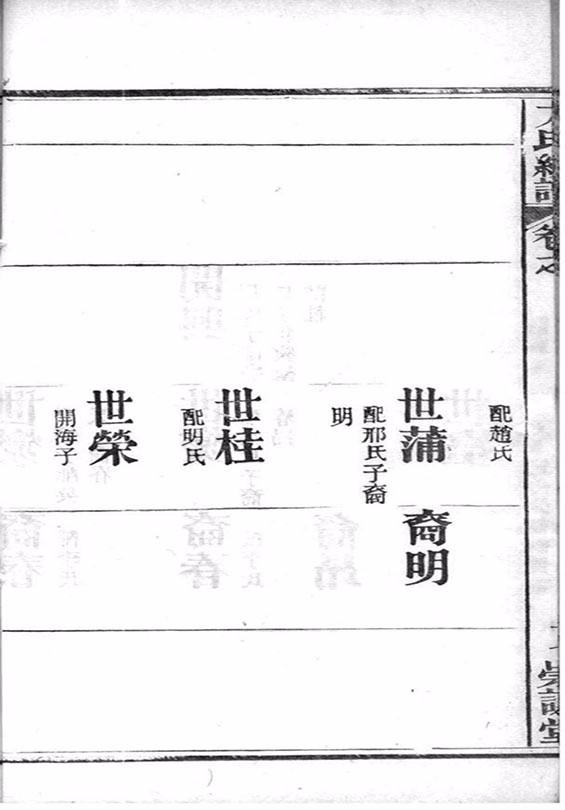 配趙氏
世蒲
配邢氏子裔
明
裔明
世桂
配明氏
世榮
開海子